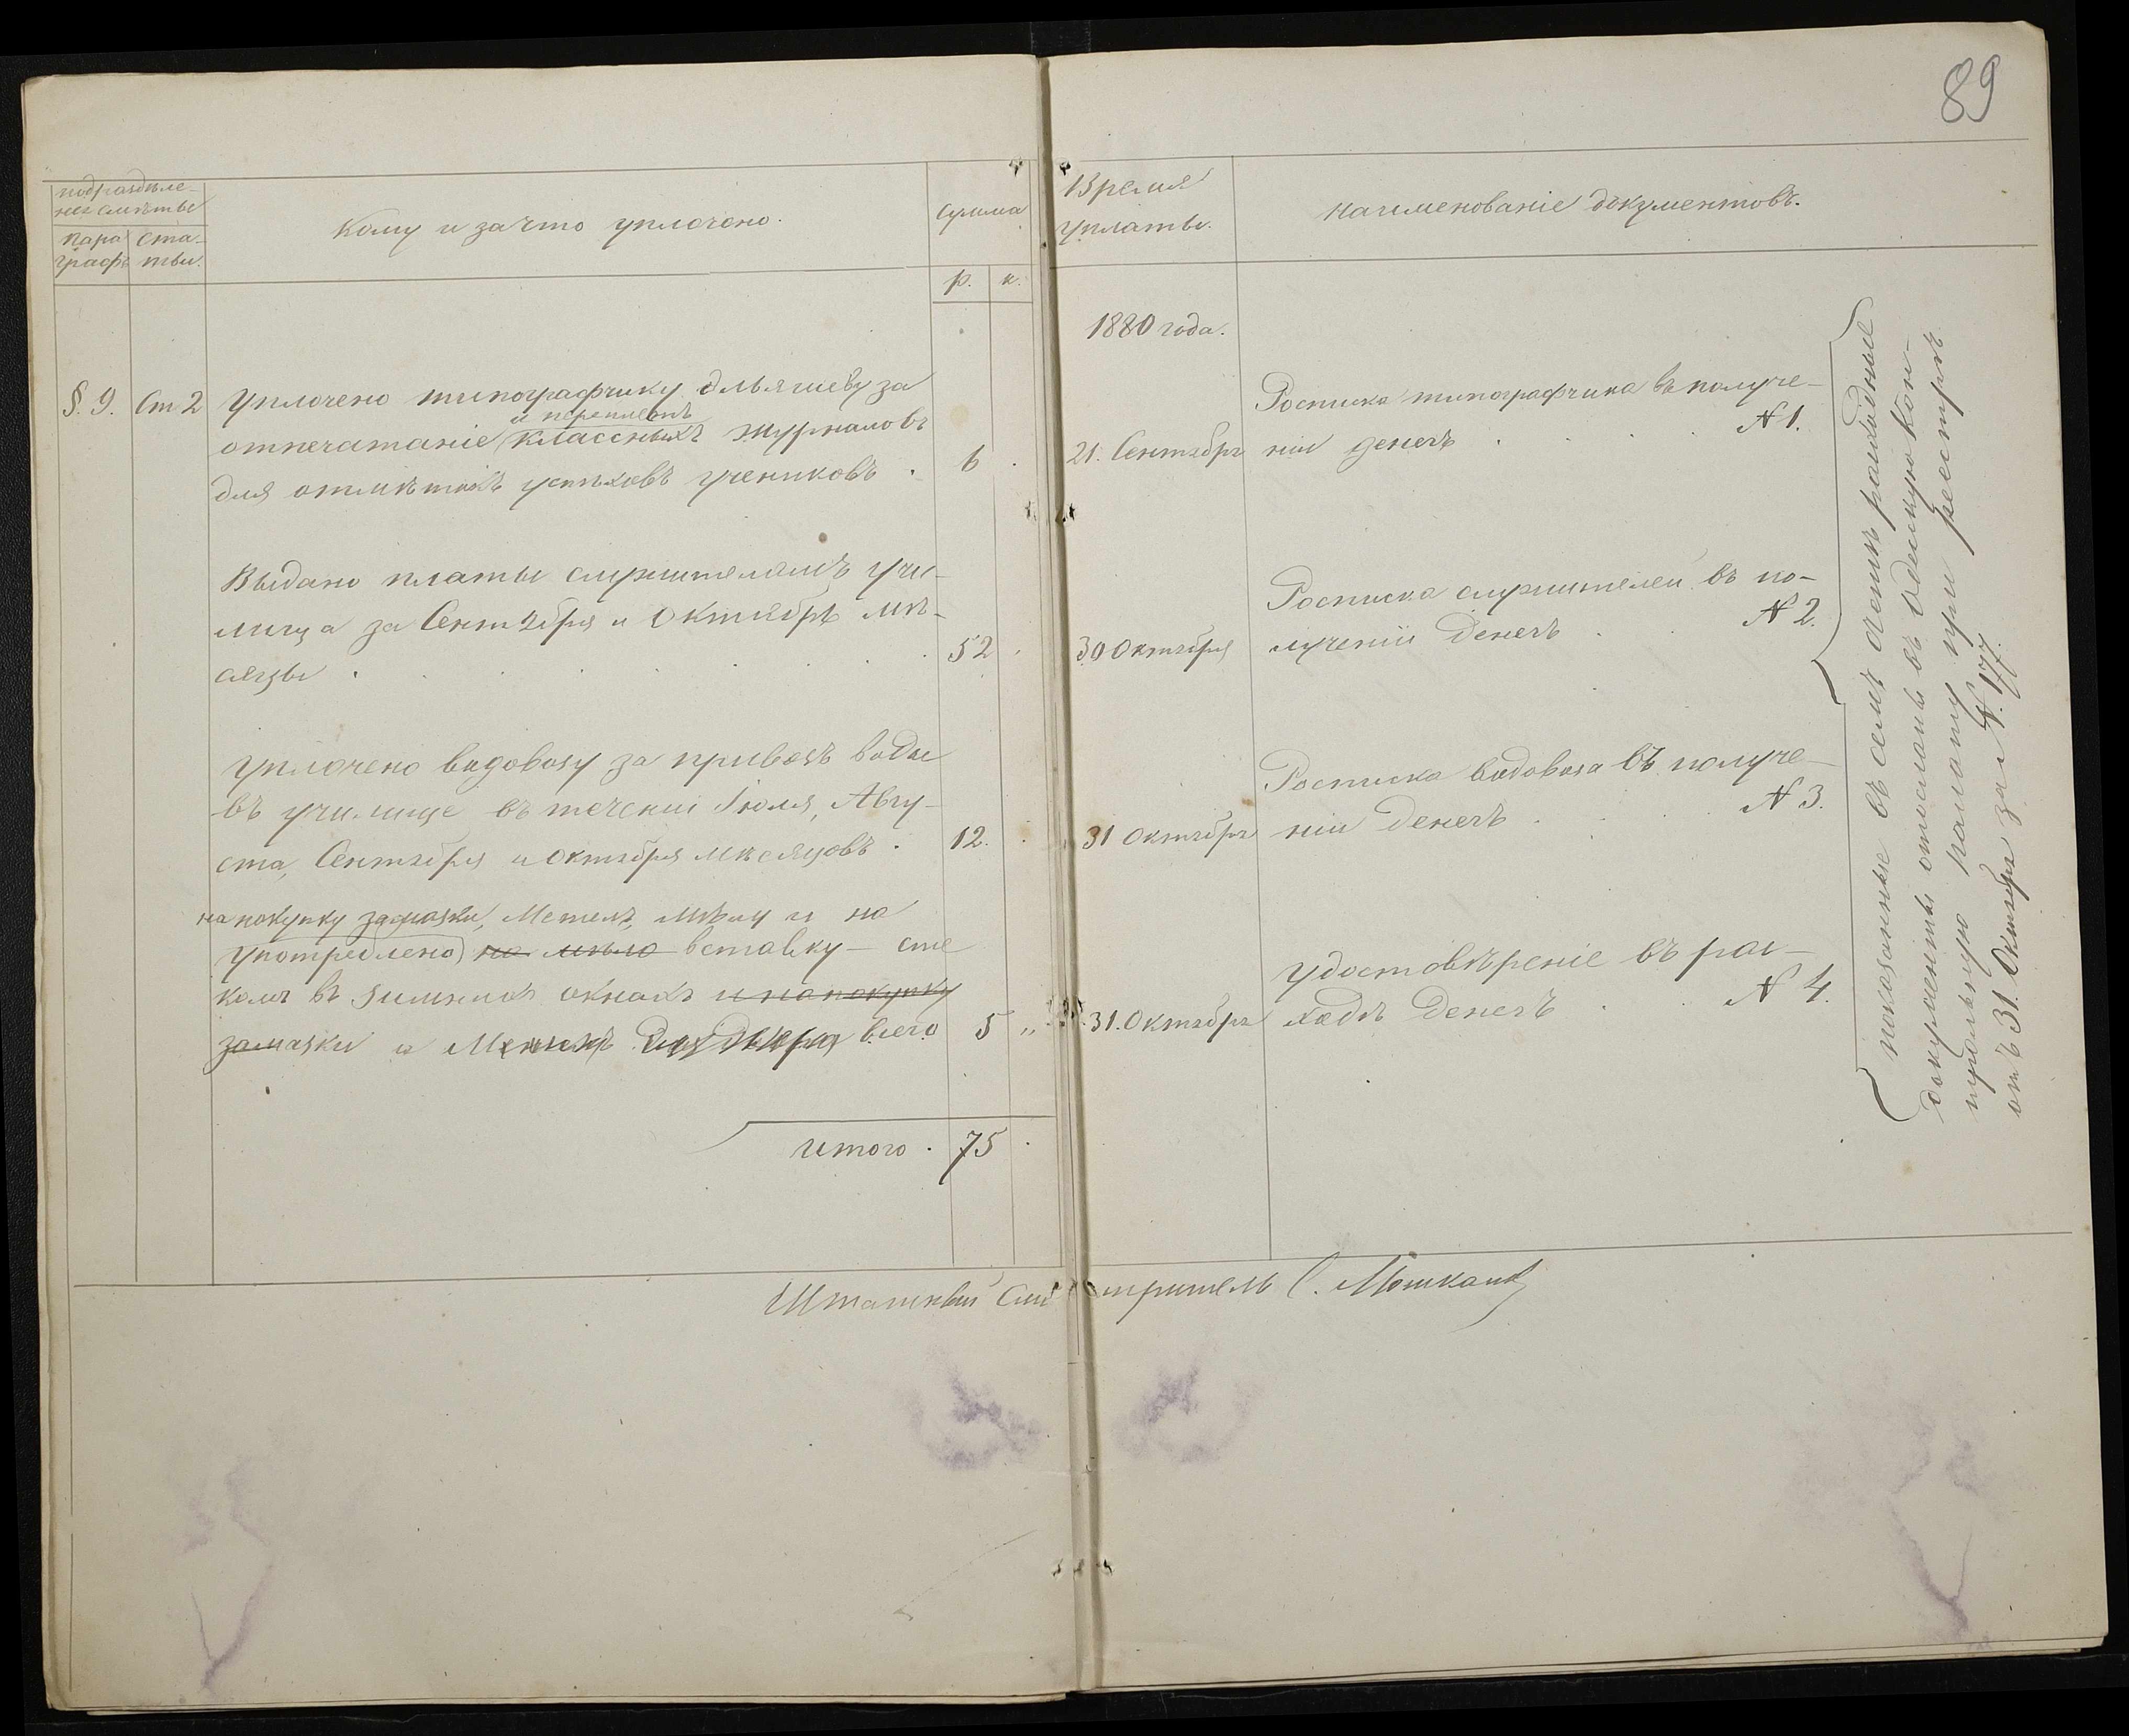 89
подраздѣле-
нія смѣты
пара
графъ
ста-
тьи.
Кому и за что уплочено.
сумма
р. к.
Время
уплаты.
Наименованіе документовъ.
1880 года.
§. 9. Ст 2 Уплочено типографчику за
и переплетъ
отпечатаніе классныхъ журналовъ
для отмѣтокъ успѣховъ учениковъ . 6 .
21. Сентября
Росписка типографчика въ получе-
ніи денегъ . . . . N 1.
Выдано платы служителямъ учи-
лища за Сентября и Октябрь мѣ-
сяцы . . . . . . 52 .
30 Октября
Росписка служителей въ по-
лученіи денегъ . . N 2.
Уплочено водовозу за привозъ воды
въ училище въ теченіи Іюля, Авгу-
ста, Сентября и Октября мѣсяцовъ . 12. .
31 Октября
Росписка водовоза въ получе-
ніи денегъ . . . N 3.
на покупку замазки, Метелъ, мѣлу и на
Употреблено на мѣло вставку сте
колъ въ зимнихъ окнахъ и на покупку
замазки и всего 5 „
31. Октября
Удостовѣреніе въ рас-
ходѣ денегъ . . N 4.
итого . 75 .
показанные въ семъ счетѣ расходные
документы отосланы въ Одесскую Кон-
трольную палату при реестрѣ
отъ 31. Октября за N. 177.
Штатный Смотритель С.